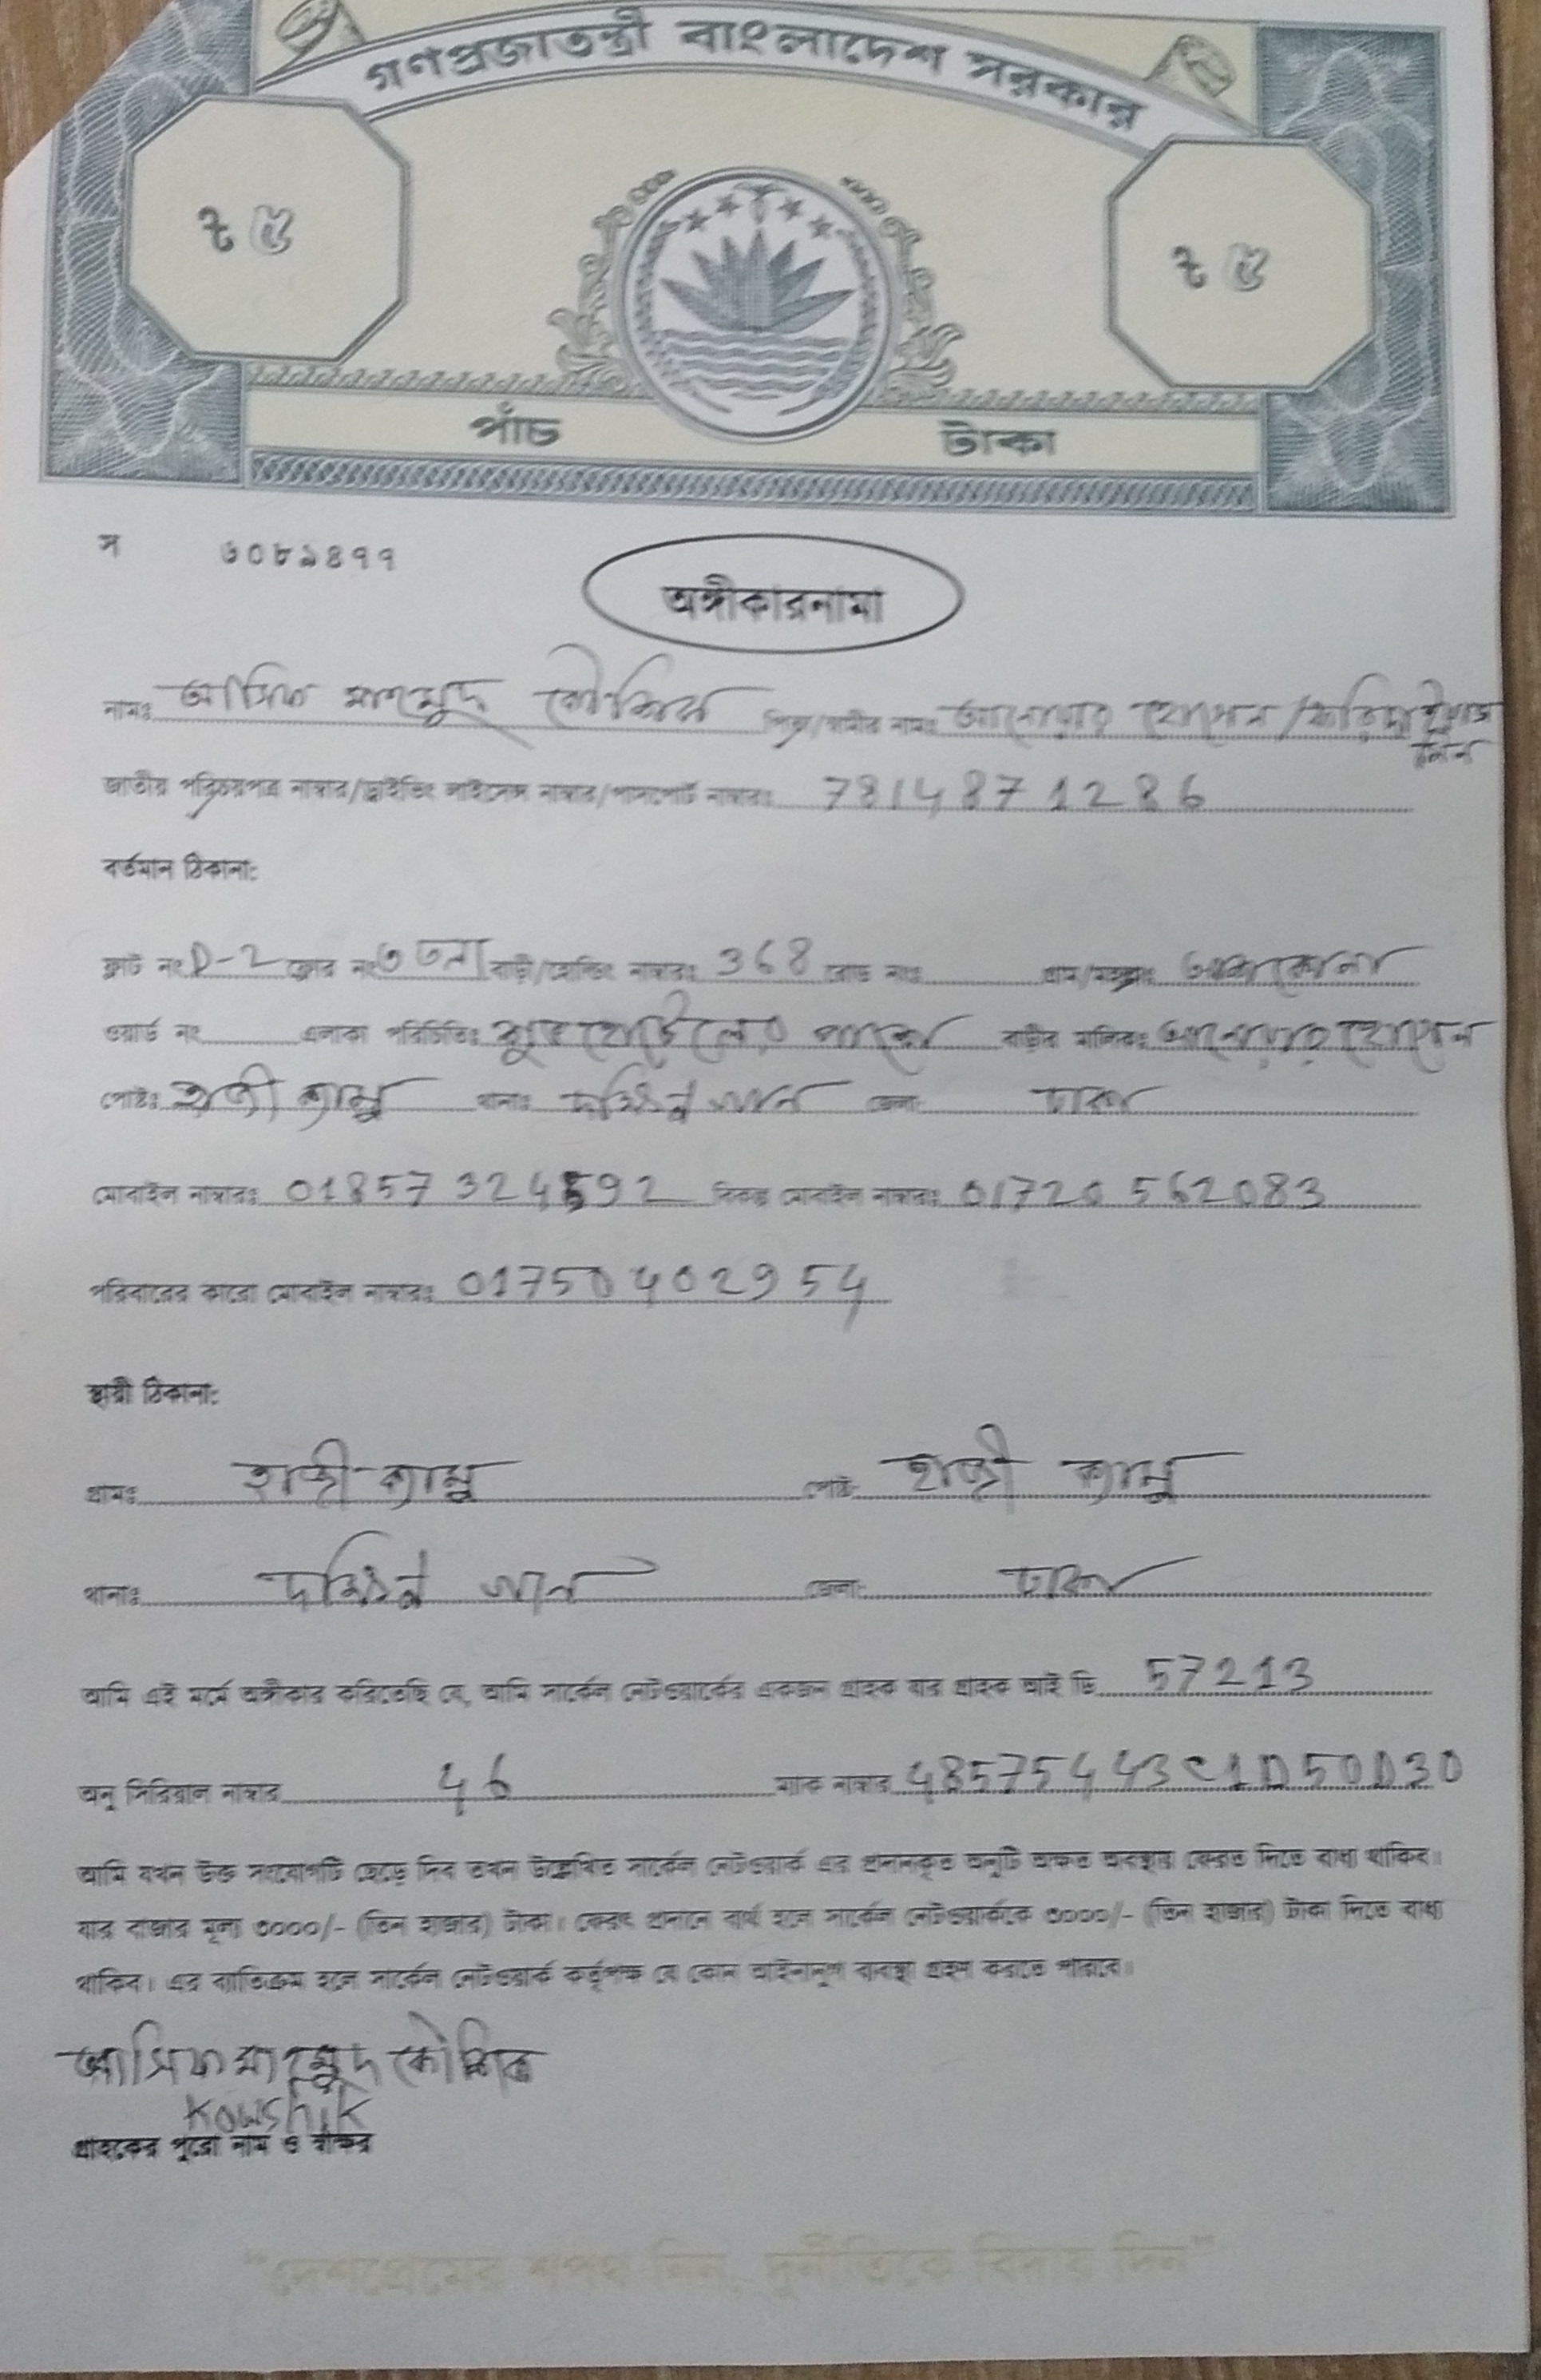 গণপ্রজাতন্ত্রী বাংলাদেশ সরকার
৳ ৫ ৳ ৫
পাঁচ টাকা
স ৬০৮৯৪৭৭
অঙ্গীকারনামা
নামঃ আসিফ মাহমুদ কৌশিক পিতা/স্বামীর নামঃ আনোয়ার হোসেন /
জাতীয় পরিচয়পত্র নাম্বার/ড্রাইভিং লাইসেন্স নাম্বার/পাসপোর্ট নাম্বারঃ 7814871286
বর্তমান ঠিকানা:
ফ্লাট নং D-2 ফ্লোর নং ৩ তলা বাড়ী/হোল্ডিং নাম্বারঃ 368 রোড নংঃ গ্রাম/মহল্লাঃ
ওয়ার্ড নং এলাকা পরিচিতিঃ হোটেলের পাশে বাড়ীর মালিকঃ আনোয়ার হোসেন
পোষ্টঃ হাজী ক্যাম্প থানাঃ দক্ষিণ খান জেলা: ঢাকা
মোবাইল নাম্বারঃ 01857 324592 বিকল্প মোবাইল নাম্বারঃ 01720 562083
পরিবারের কারো মোবাইল নাম্বারঃ 01750402954
স্থায়ী ঠিকানা:
গ্রামঃ হাজী ক্যাম্প পোষ্ট: হাজী ক্যাম্প
থানাঃ দক্ষিণ খান জেলা: ঢাকা
আমি এই মর্মে অঙ্গীকার করিতেছি যে, আমি সার্কেল নেটওয়ার্কের একজন গ্রাহক যার গ্রাহক আই ডি 57213
অনু সিরিয়াল নাম্বার 46 ম্যাক নাম্বার 48575443C1D50D30
আমি যখন উক্ত সংযোগটি ছেড়ে দিব তখন উল্লেখিত সার্কেল নেটওয়ার্ক এর প্রদানকৃত অনুটি অক্ষত অবস্থায় ফেরত দিতে বাধ্য থাকিব।
যার বাজার মূল্য ৩০০০/- (তিন হাজার) টাকা। ফেরৎ প্রদানে ব্যর্থ হলে সার্কেল নেটওয়ার্ককে ৩০০০/- (তিন হাজার) টাকা দিতে বাধ্য
থাকিব। এর ব্যাতিক্রম হলে সার্কেল নেটওয়ার্ক কর্তৃপক্ষ যে কোন আইনানুগ ব্যবস্থা গ্রহন করতে পারবে।
আসিফ মাহমুদ কৌশিক
Kowshik
গ্রাহকের পুরো নাম ও স্বাক্ষর
"দেশপ্রেমের শপথ নিন, দুর্নীতিকে বিদায় দিন"